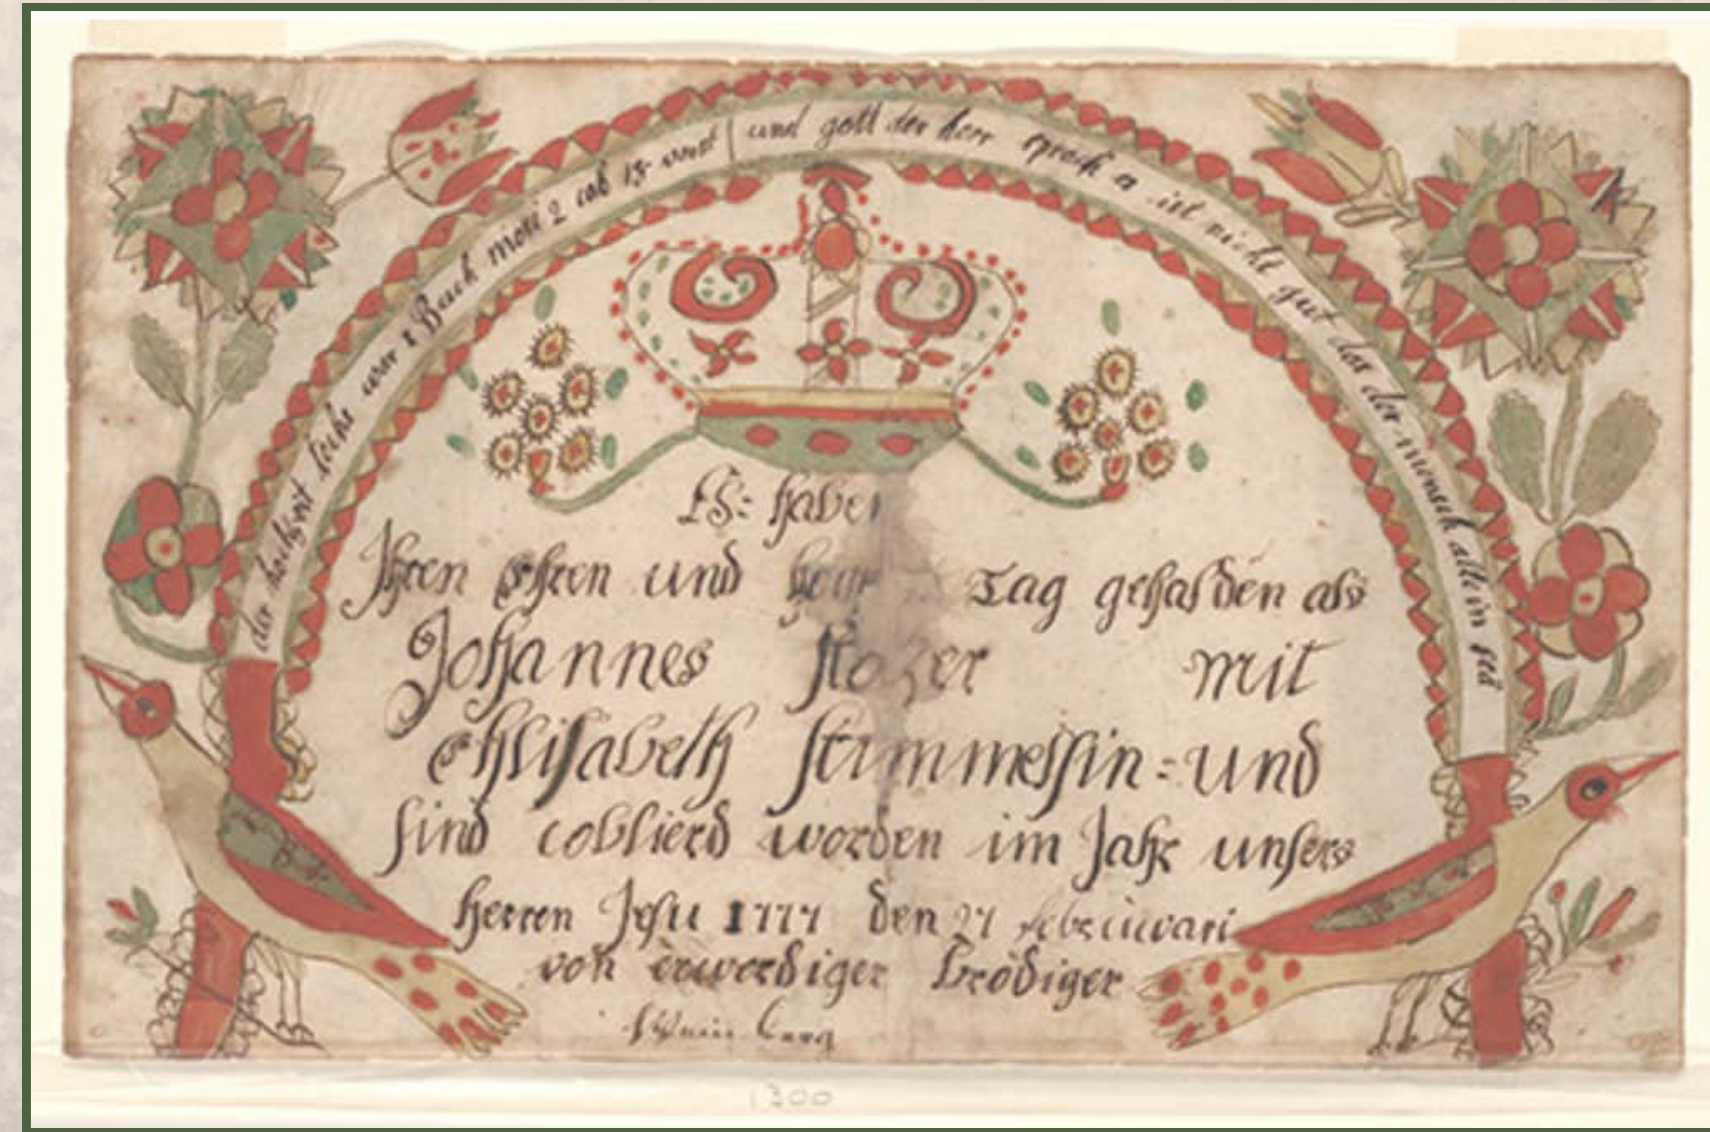 der hochzeit techs war 1 Buch mosi 2 cab 18 und gott der herr sprach es ist nicht gut das der mensch allein sed
Es: haben
Ihren Ehren und Tag gehalden als
Johannes mit
Ehlisabeth Stimmelsin = und
sind cobliерd worden im Jahr unsers
Herren Jesu 1777 den 27 februwari
von erwordiger brödiger
1300